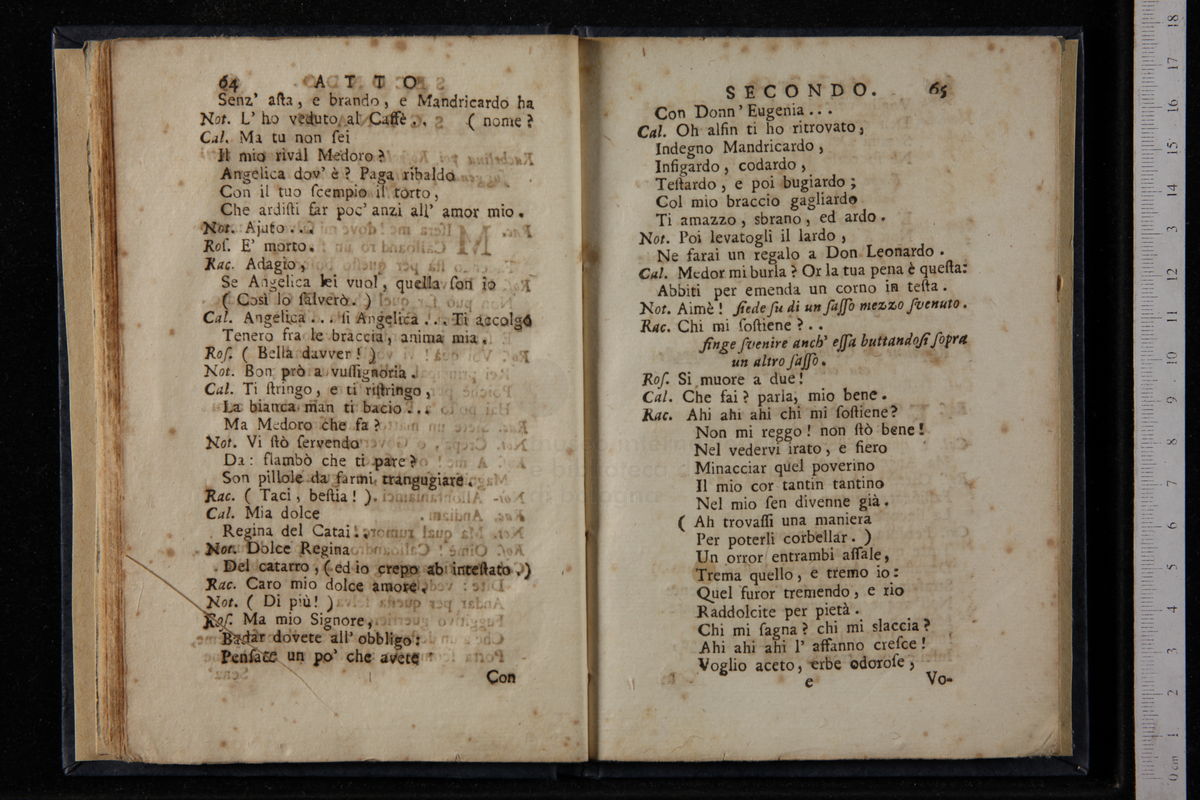 64 ATTO
Senz' aſta, e brando, e Mandricardo ha
Not. L' ho veduto al Caffè . . ( nome?
Cal. Ma tu non ſei
Il mio rival Medoro?
Angelica dov' è? Paga ribaldo
Con il tuo ſcempio il torto,
Che ardiſti far poc' anzi all' amor mio.
Not. Ajuto . . .
Roſ. E' morto.
Rac. Adagio,
Se Angelica lei vuol, quella ſon io
( Così lo ſalverò. )
Cal. Angelica . . . ſi Angelica . . . Ti accolgo
Tenero fra le braccia, anima mia.
Roſ. ( Bella davver! )
Not. Bon prò a vuſſignoria.
Cal. Ti ſtringo, e ti riſtringo,
La bianca man ti bacio . . .
Ma Medoro che fa?
Not. Vi ſtò ſervendo
Da: flambò che ti pare?
Son pillole da farmi trangugiare.
Rac. ( Taci, beſtia! )
Cal. Mia dolce
Regina del Catai!
Not. Dolce Regina
Del catarro, ( ed io crepo ab inteſtato. )
Rac. Caro mio dolce amore.
Not. ( Di più! )
Roſ. Ma mio Signore,
Badar dovete all' obbligo:
Penſate un po' che avete
Con
SECONDO. 65
Con Donn' Eugenia . . .
Cal. Oh alfin ti ho ritrovato,
Indegno Mandricardo,
Infigardo, codardo,
Teſtardo, e poi bugiardo;
Col mio braccio gagliardo
Ti amazzo, sbrano, ed ardo.
Not. Poi levatogli il lardo,
Ne farai un regalo a Don Leonardo.
Cal. Medor mi burla? Or la tua pena è queſta:
Abbiti per emenda un corno in teſta.
Not. Aimè! ſiede ſu di un ſaſſo mezzo ſvenuto.
Rac. Chi mi ſoſtiene? . .
finge ſvenire anch' eſſa buttandoſi ſopra
un altro ſaſſo.
Roſ. Si muore a due!
Cal. Che fai? parla, mio bene.
Rac. Ahi ahi ahi chi mi ſoſtiene?
Non mi reggo! non ſtò bene!
Nel vedervi irato, e fiero
Minacciar quel poverino
Il mio cor tantin tantino
Nel mio ſen divenne già.
( Ah trovaſſi una maniera
Per poterli corbellar. )
Un orror entrambi aſſale,
Trema quello, e tremo io:
Quel furor tremendo, e rio
Raddolcite per pietà.
Chi mi ſagna? chi mi slaccia?
Ahi ahi ahi l' affanno creſce!
Voglio aceto, erbe odoroſe,
e Vo-